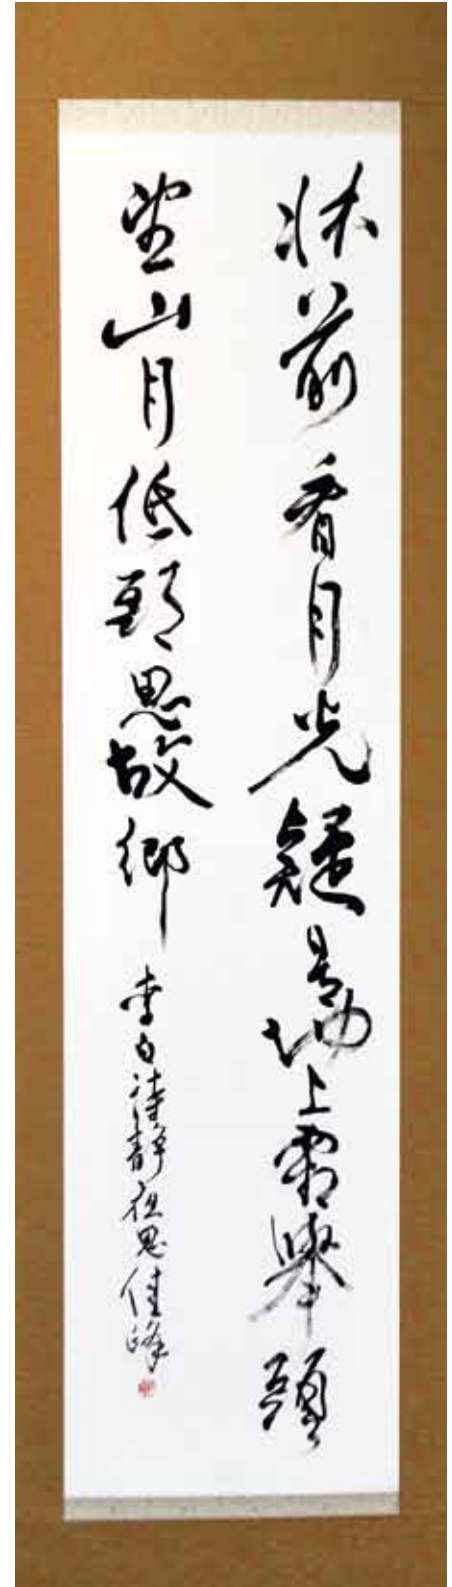 牀前看月光疑是地上霜舉頭
望山月低頭思故郷 李白詩靜夜思佳峰